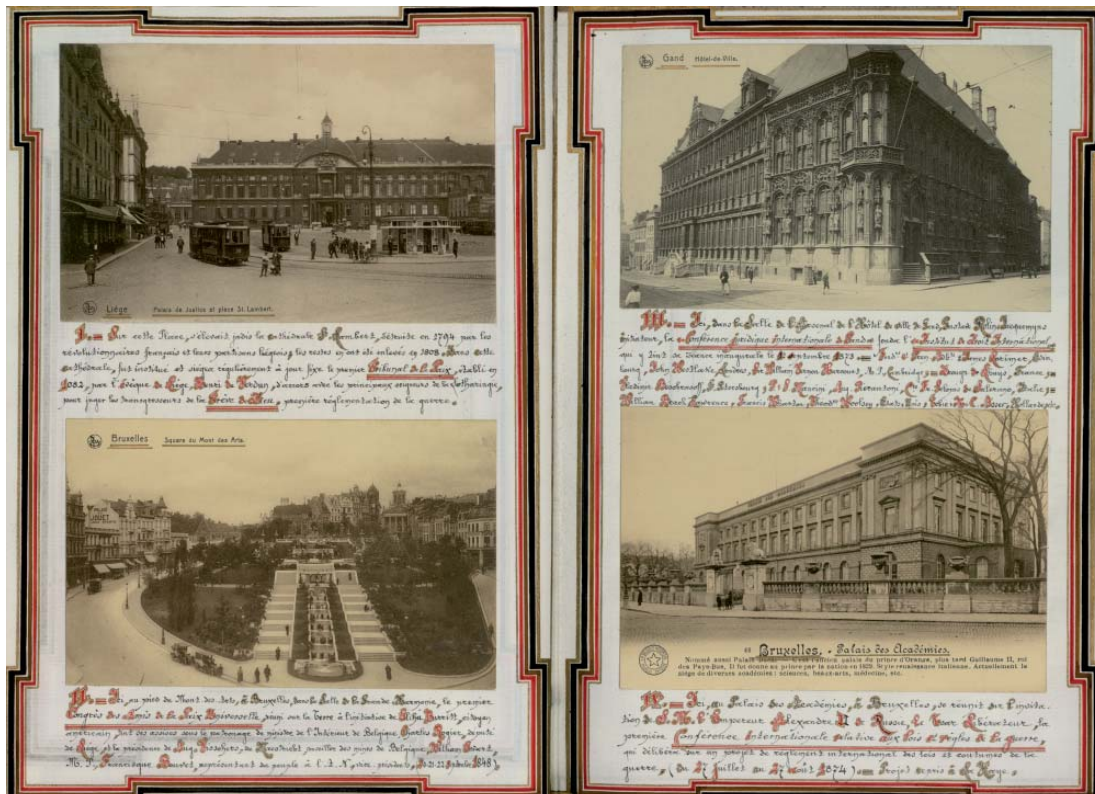 Liége Palais de Justice et place St. Lambert.
I. — Sur cette Place, s'élevait jadis la cathédrale St Lambert, détruite en 1794 par les
révolutionnaires français et leurs partisans liégeois; les restes en ont été enlevés en 1808. Dans cette
cathédrale, fut institué et siégea régulièrement à jour fixe le premier Tribunal de la Paix, établi en
1082, par l'Evêque de Liège, Henri de Verdun, d'accord avec les principaux seigneurs de la Lotharingie,
pour juger les transgresseurs de la Trêve de Dieu, première réglementation de la guerre.
Bruxelles Square du Mont des Arts.
II. — Ici, au pied du Mont des Arts, à Bruxelles, dans la Salle de la Grande Harmonie, le premier
Congrès des Amis de la Paix Universelle, réuni sur la Terre à l'initiative de Elihu Burritt, citoyen
américain, tint ses assises sous le patronage du ministre de l'Intérieur de Belgique Charles Rogier, député
de Liège, et la présidence de Aug. Visschers, de Maestricht, conseiller des mines de Belgique, William Ewart,
M. P., Francisque Bouvet, représentant du peuple à l'A. N., vice présidents, 20-21-22 1848)
Gand Hôtel-de-Ville.
III. — Ici, dans la Salle de l'Arsenal de l'Hôtel de ville de Gand, Gustave Rolin-Jaequemyns
initiateur, la Conférence Juridique Internationale de Gand fonda l'Institut de Droit International,
qui y tint sa séance inaugurale le 1873 —
bourg, John Westlake, Londres, — France —
Wladimir Besobrasoff, St Pétersbourg, P. S. Mancini, Aug. Pierantoni, Italie —
William Beach Lawrence, Francis Wharton, Woolsey, Etats-Unis — Asser, Hollandais.
68 Bruxelles. - Palais des Académies.
Nommé aussi Palais Ducal. — C'est l'ancien palais du prince d'Orange, plus tard Guillaume II, roi
des Pays-Bas. Il fut donné au prince par la nation en 1829. Style renaissance italienne. Actuellement le
siège de diverses académies: sciences, beaux-arts, médecine, etc.
IV. — Ici, au Palais des Académies, à Bruxelles, se réunit sur l'invita-
tion de S. M. l'Empereur Alexandre II de Russie, le Tsar Libérateur, la
première Conférence Internationale relative aux lois et règles de la guerre,
qui délibéra sur un projet de règlement international des lois et coutumes de la
guerre, (du 27 juillet au 27 août 1874) — Projet repris à La Haye.